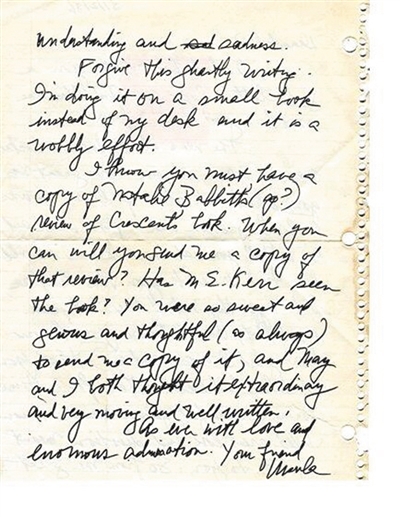 understanding and sadness.
Forgive this ghastly writing.
I'm doing it on a small book
instead of my desk and it is a
wobbly effort.
I know you must have a
copy of Natalie Babbitts (sp?)
review of Crescent's book. When you
can will you send me a copy of
that review? Has M.E. Kerr seen
the book? You were so sweet and
generous and thoughtful (as always)
to send me a copy of it, and May
and I both thought it extraordinary
and very moving and well written.
As ever with love and
enormous admiration. Your friend